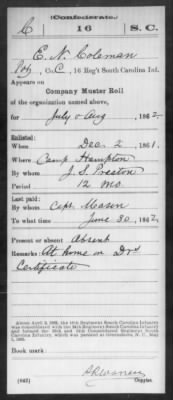 (Confederate.)
C 16 S. C.
E. N. Coleman
Pvt, Co. C, 16 Reg't South Carolina Inf.
Appears on
Company Muster Roll
of the organization named above,
for July & Aug, 1862.
Enlisted:
When Dec. 2, 1861.
Where Camp Hampton
By whom J. S. Preston
Period 12 mo.
Last paid:
By whom Capt. Mason
To what time June 30, 1862.
Present or absent Absent
Remarks: At home on Drs
Certificate
Book mark:
(642) Copyist.